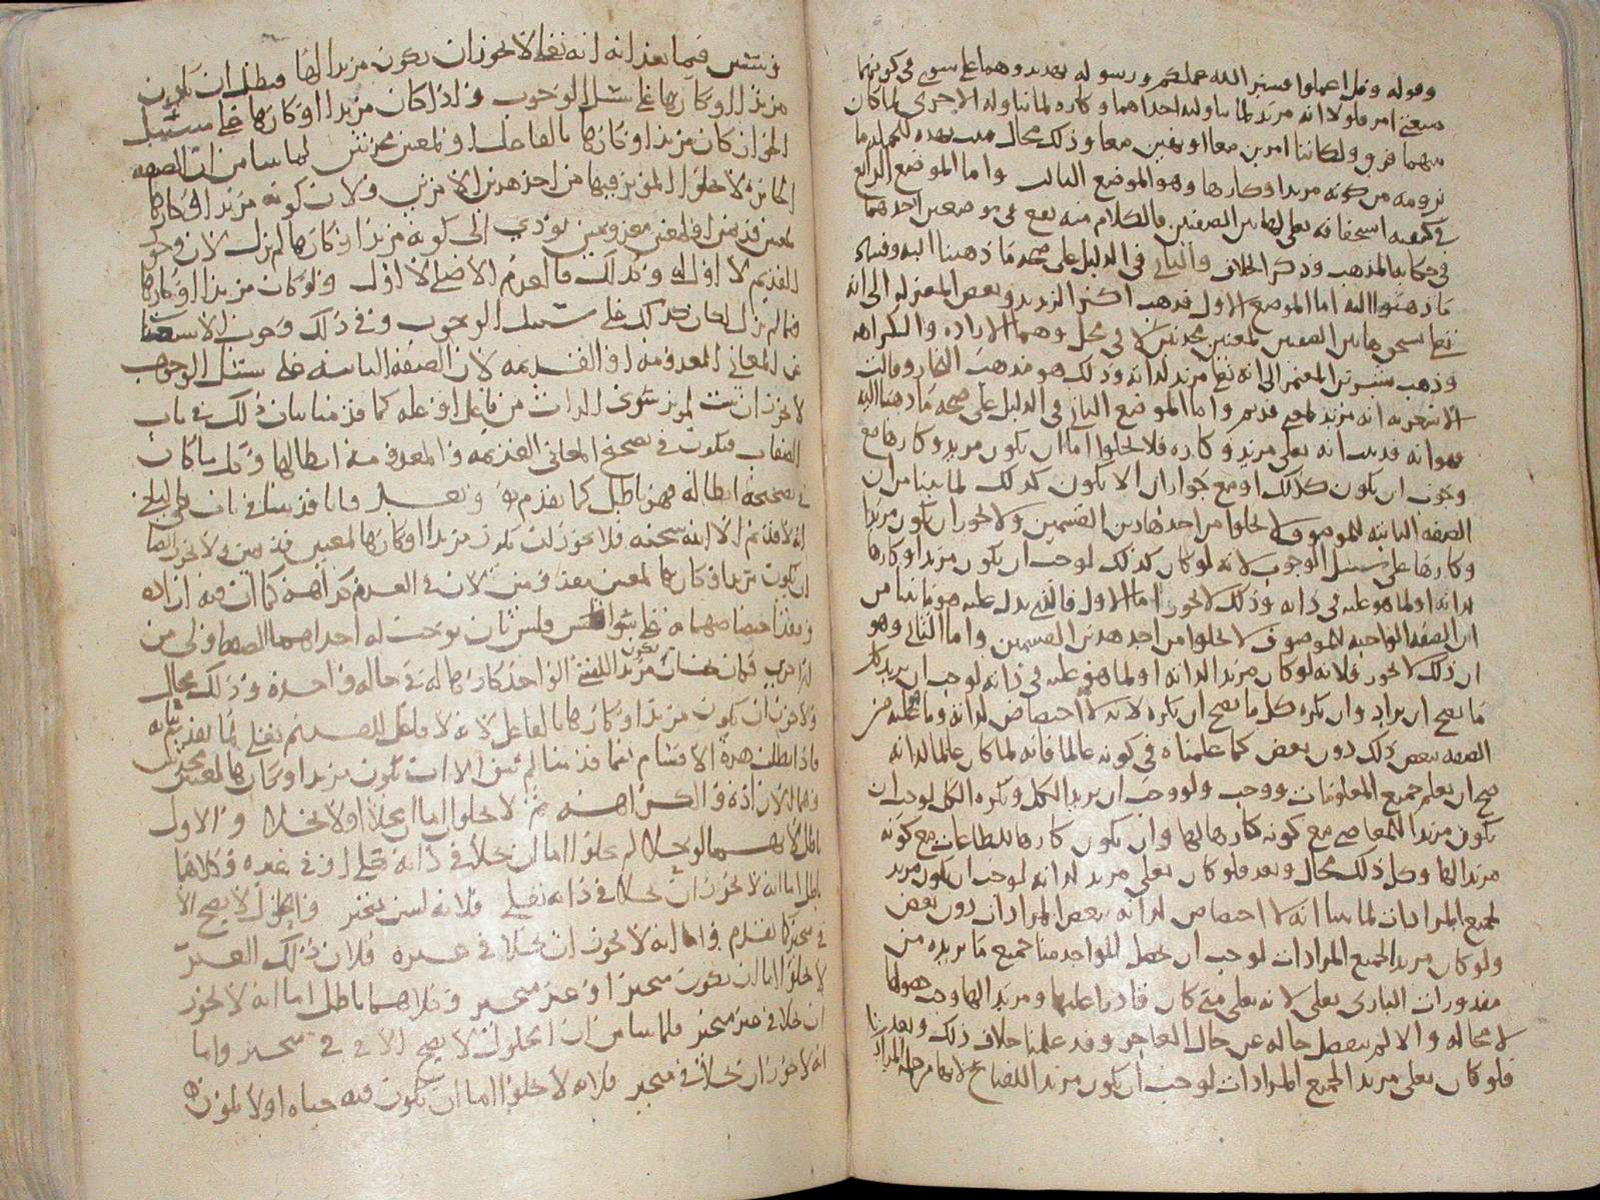 وقوله وقل اعملوا فسيرى الله عملكم ورسوله تهديد وهما على سوى في كونهما
صيغتي امر فلولا انه مريد لما تناوله احداهما وكاره لما تناوله الاخرى لما كان
بينهما فرق ولكانتا امرين معا او نهيين معا وذلك محال فهذه
من كونه مريدا وكارها وهو الموضع الثالث واما الموضع الرابع
في كيفية استحقاقه تعالى لهاتين الصفتين فالكلام منه يقع في موضعين احدهما
في حكاية المذهب وذكر الخلاف والثاني في الدليل على صحة ما ذهبنا اليه وفساد
ما ذهبوا اليه اما الموضع الاول فذهب اكثر الزيدية وبعض المعتزلة الى انه
تعالى يستحق هاتين الصفتين لمعنيين محدثين لا في محل وهما الارادة والكراهة
وذهب بشر بن المعتمر الى انه تعالى مريد لذاته وذلك هو مذهب النجار وقالت
الاشعرية انه مريد لمعنى قديم واما الموضع الثاني في الدليل على صحة ما ذهبنا اليه
فهو انه قد ثبت انه تعالى مريد وكاره فلا يخلوا اما ان يكون مريدا وكارها مع
وجوب ان يكون كذلك او مع جواز ان لا يكون كذلك لما بينا من ان
الصفة الثابتة للموصوف لا يخلوا من احد هاذين القسمين ولا يجوز ان يكون مريدا
وكارها على سبيل الوجوب لانه لو كان كذلك لوجب ان يكون مريدا وكارها
لذاته او لما هو عليه في ذاته وذلك لا يجوز اما الاول فالذي يدل عليه هو ما بينا من
ان الصفة الواجبة للموصوف لا يخلوا من احد هذين القسمين واما الثاني وهو
ان ذلك لا يجوز فلانه لو كان مريدا لذاته او لما هو عليه في ذاته لوجب ان يريد كل
ما يصح ان يراد وان يكره كل ما يصح ان يكره لانه لا اختصاص لذاته وما هي عليه من
الصفة ببعض ذلك دون بعض كما علمناه في كونه عالما فانه لما كان عالما لذاته
صح ان يعلم جميع المعلومات ووجب ولو وجب ان يريد الكل ويكره الكل لوجب ان
يكون مريدا للمعاصي مع كونه كارها لها وان يكون كارها للطاعات مع كونه
مريدا لها وكل ذلك محال وبعد فلو كان تعالى مريدا لذاته لوجب ان يكون مريدا
لجميع المرادات لما بينا انه لا اختصاص لذاته ببعض المرادات دون بعض
ولو كان مريدا لجميع المرادات لوجب ان يحصل للواحد منا جميع ما يريده من
مقدورات الباري تعالى لانه تعالى متى كان قادرا عليها ومريدا لها وجب حصولها
لا محالة والا لم ينفصل حاله عن حال العاجز وقد علمنا خلاف ذلك وبعد
فلو كان تعالى مريدا لجميع المرادات لوجب ان يكون مريدا للقبائح لانها من جملة المرادات
فيما بعد انه تعالى لا يجوز ان يكون مريدا لها فبطل ان يكون
مريدا او كارها على سبيل الوجوب واذا كان مريدا او كارها على سبيل
الجواز كان مريدا او كارها بالفاعل او لمعنيين محدثين لما بينا من ان الصفة
الجائزة لا يخلوا المؤثر فيها من احد هذين الامرين ولان كونه مريدا او كارها
لمعنيين قديمين او لمعنيين معدومين يؤدي الى كونه مريدا او كارها لم يزل لان وجود
القديم لا اول له وكذلك فالعدم الاصلي لا اول ولو كان مريدا او كارها
فيما لم يزل لكان كذلك على سبيل الوجوب وفي ذلك وجوب الاستغناء
عن المعاني المعدومة او القديمة لان الصفة الثابتة على سبيل الوجوب
لا يجوز ان تثبت لمؤثر سوى الذات من فاعل او علة كما قدمنا بيان ذلك في باب
الصفات فيكون في تصحيح المعاني القديمة والمعدومة ابطالها وكل ما كان
في تصحيحه ابطاله فهو باطل كما تقدم وبعد فانا قد بينا في باب
انه لا قديم الا الله سبحانه فلا يجوز ان يكون مريدا او كارها لمعنيين قديمين ولا يجوز ايضا
ان يكون مريدا وكارها لمعنيين معدومين لان في العدم كراهة كما ان فيه ارادة
وبعد اختصاصهما به على سواء فليس بان يوجب له احداهما الصفة اولى من
الاخرى فكان يكون مريدا للشيء الواحد كارها له في حالة واحدة وذلك محال
ولا يجوز ان يكون مريدا او كارها بالفاعل لانه لا فاعل للقديم تعالى لما تقدم بيانه
فاذا بطلت هذه الاقسام كما قدمنا لم يبق الا ان يكون مريدا وكارها لمعنيين محدثين
وهما الارادة والكراهة ثم لا يخلوا اما ان يحلا او لا يحلا والاول
باطل لانهما لو حلا لم يخلوا اما ان يحلا في ذاته تعالى او في غيره وكلاهما
باطل اما انه لا يجوز ان يحلا في ذاته تعالى فلانه ليس بمتحيز والحلول لا يصح الا
في متحيز كما تقدم واما انه لا يجوز ان يحلا في غيره فلان ذلك الغير
لا يخلوا اما ان يكون متحيزا او غير متحيز وكلاهما باطل اما انه لا يجوز
ان يحلا في غير متحيز فلما بينا من ان الحلول لا يصح الا في متحيز واما
انه لا يجوز ان يحلا في متحيز فلانه لا يخلوا اما ان يكون فيه حياة او لا يكون